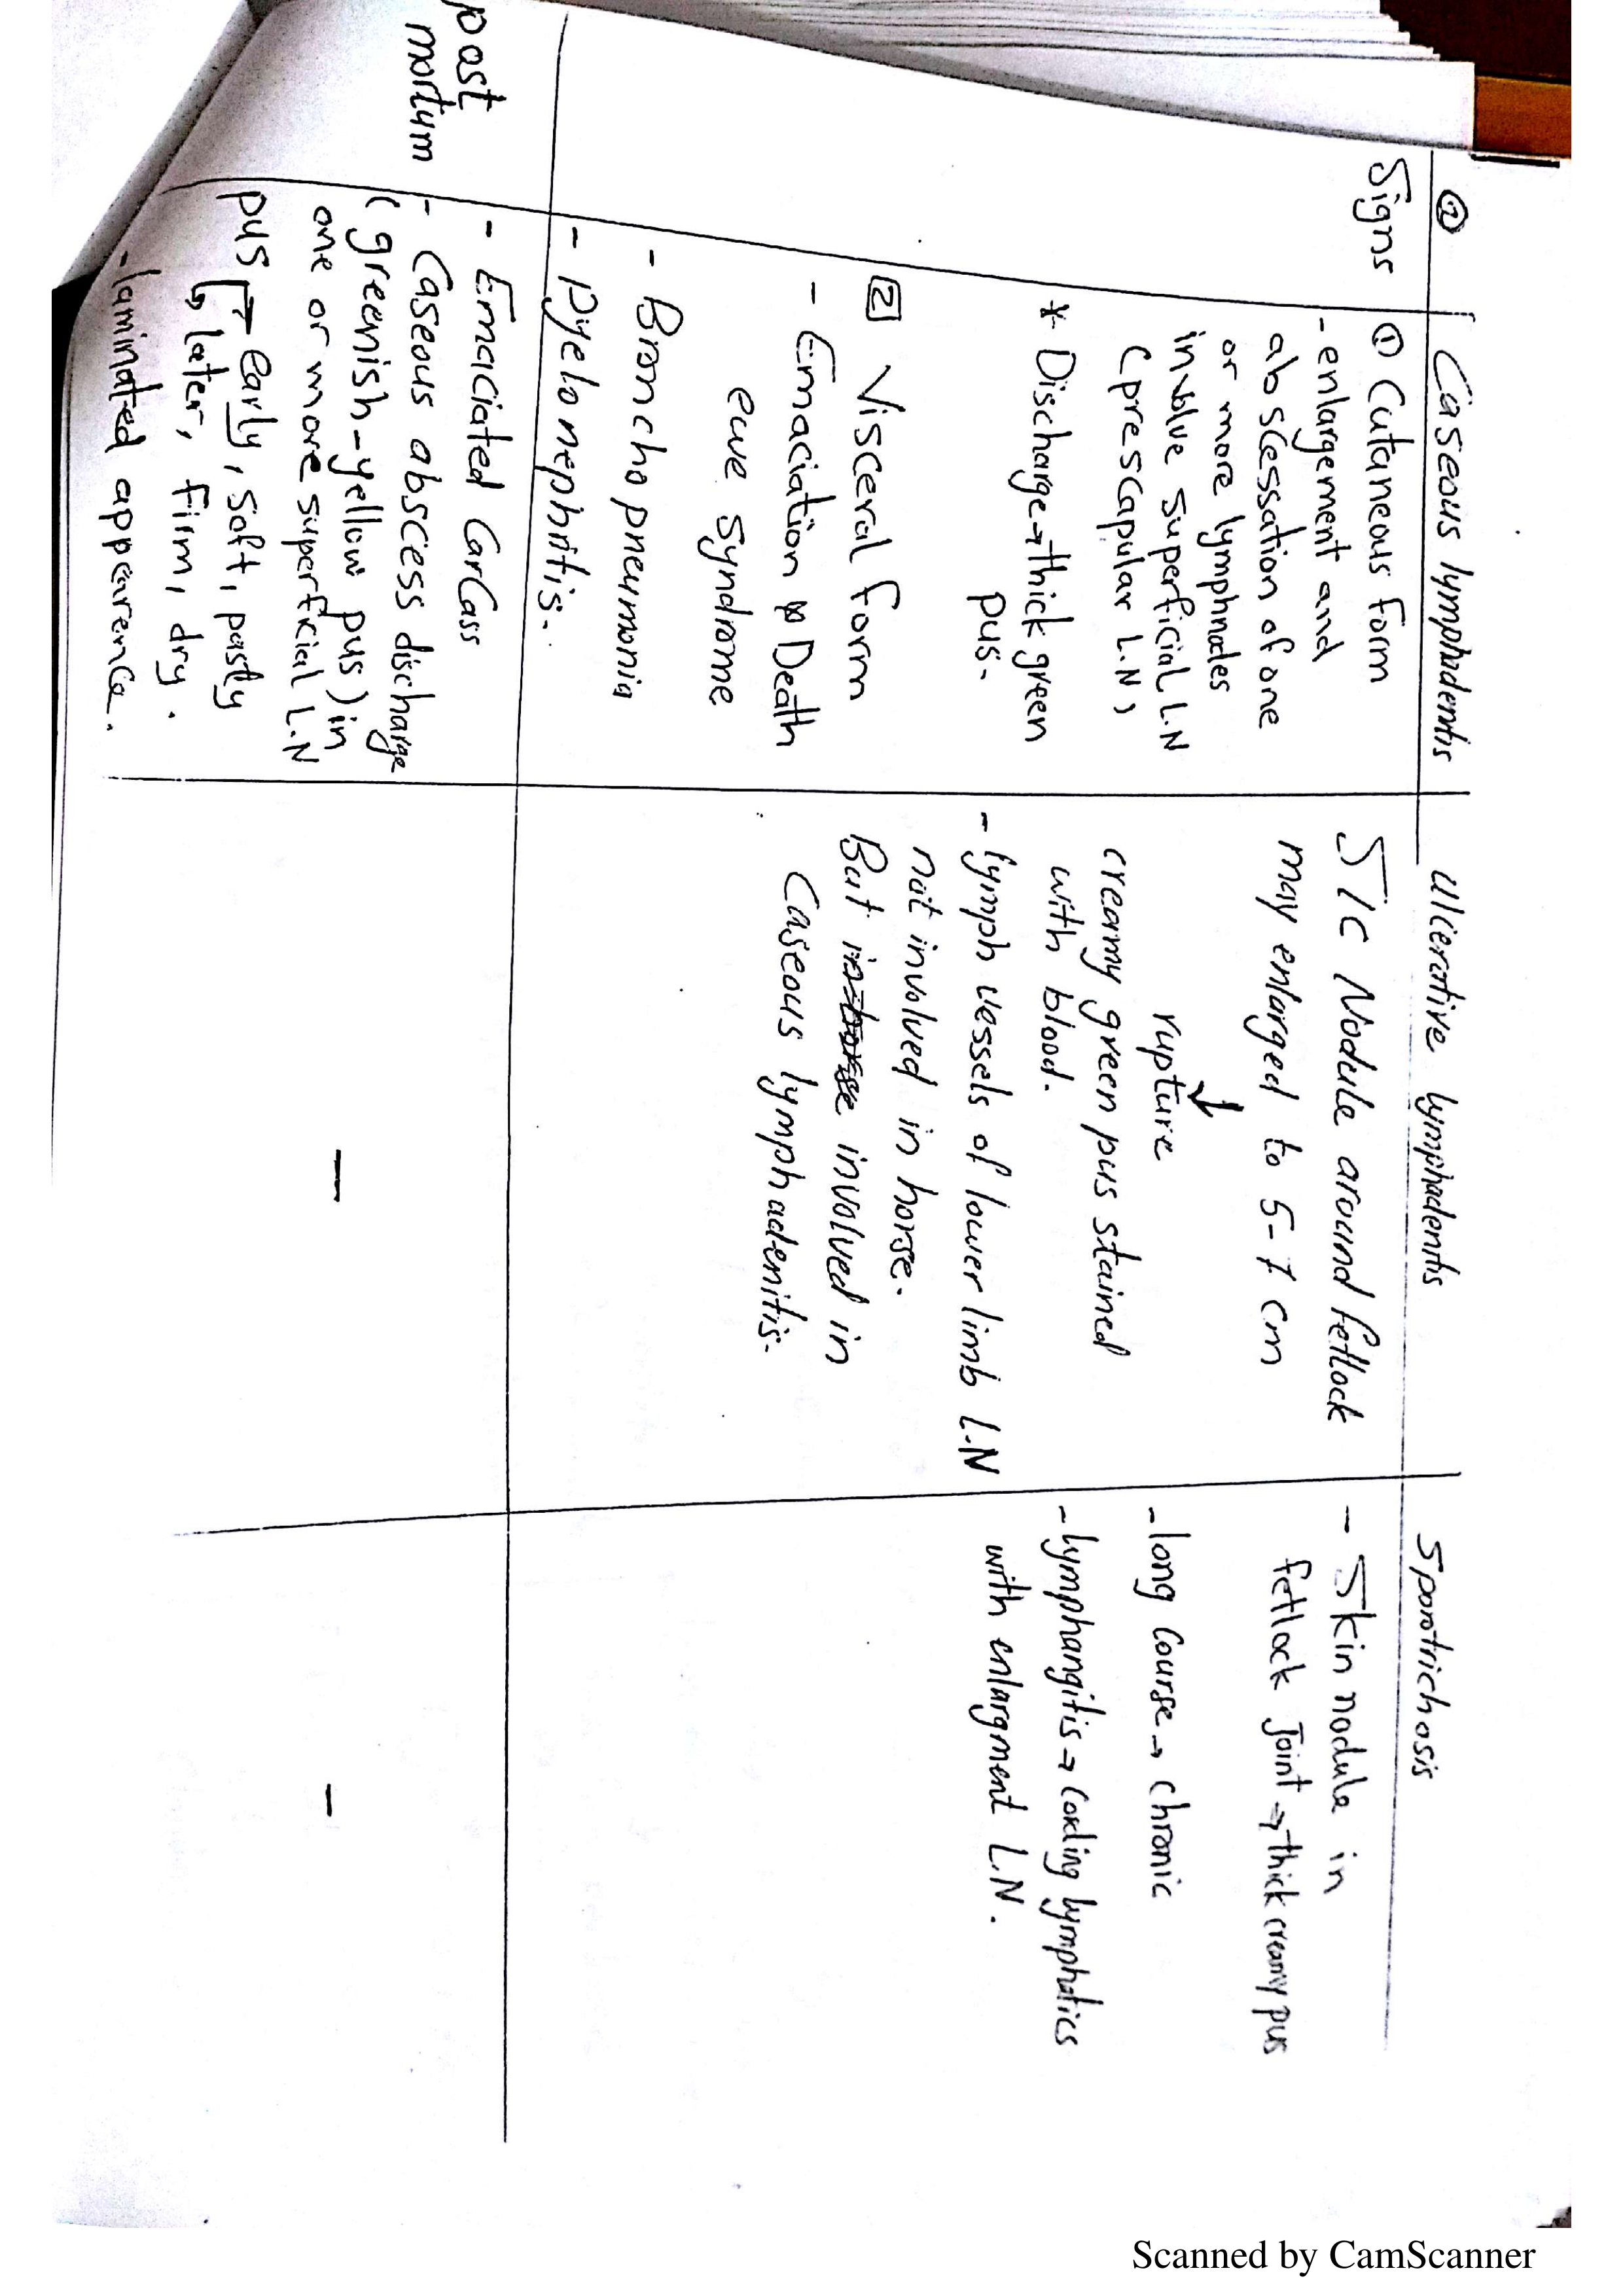 ②
Caseous lymphadentis
Ulcerative lymphadentis
Sporotrichosis
Signs
① Cutaneous form
- enlargement and
abscessation of one
or more lymphnodes
involve superficial L.N
(prescapular L.N)
* Discharge → thick green
pus.
2 Visceral form
- Emaciation Death
ewe syndrome
- Bronchopneumonia
- Pyelonephritis.
S/c Nodule around fetlock
may enlarged to 5-7 cm
↓
rupture
creamy green pus stained
with blood.
- lymph vessels of lower limb L.N
not involved in horse.
But involved in
Caseous lymphadenitis.
- Skin nodule in
fetlock Joint → thick creamy pus
- long course → chronic
- lymphangitis → cording lymphatics
with enlargment L.N.
post
mortum
- Emaciated Carcass
- Caseous abscess discharge
(greenish-yellow pus) in
one or more superficial L.N
pus → early, soft, pasty
↳ later, firm, dry.
- laminated appearence.
-
-
Scanned by CamScanner